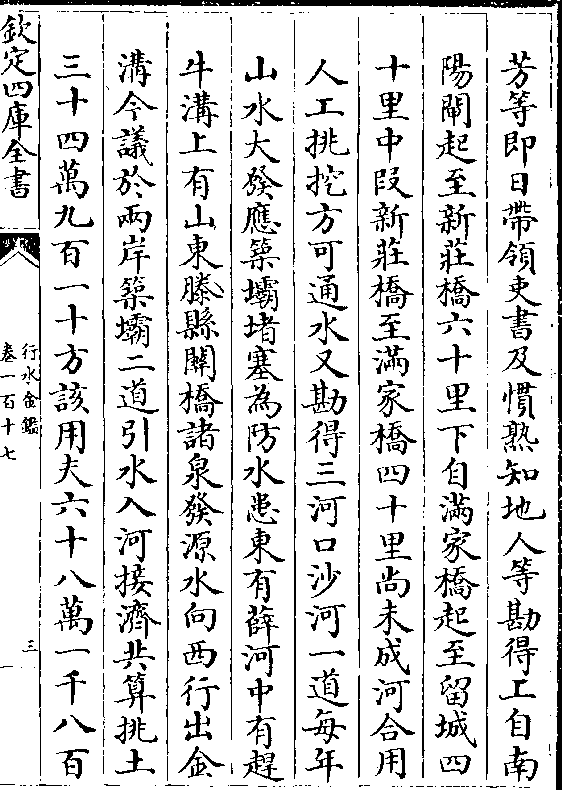 芳等即日帶領吏書及慣熟知地人等勘得工自南
陽閘起至新莊橋六十里下自滿家橋起至留城四
十里中段新莊橋至滿家橋四十里尚未成河合用
人工挑挖方可通水又勘得三河口沙河一道每年
山水大發應築壩堵塞為防水患東有薛河中有趕
牛溝上有山東滕縣關橋諸泉發源水向西行出金
溝今議於兩岸築壩二道引水入河接濟共算挑土
三十四萬九百一十方該用夫六十八萬一千八百
欽定四庫全書
行水金鑑
卷一百十七
三